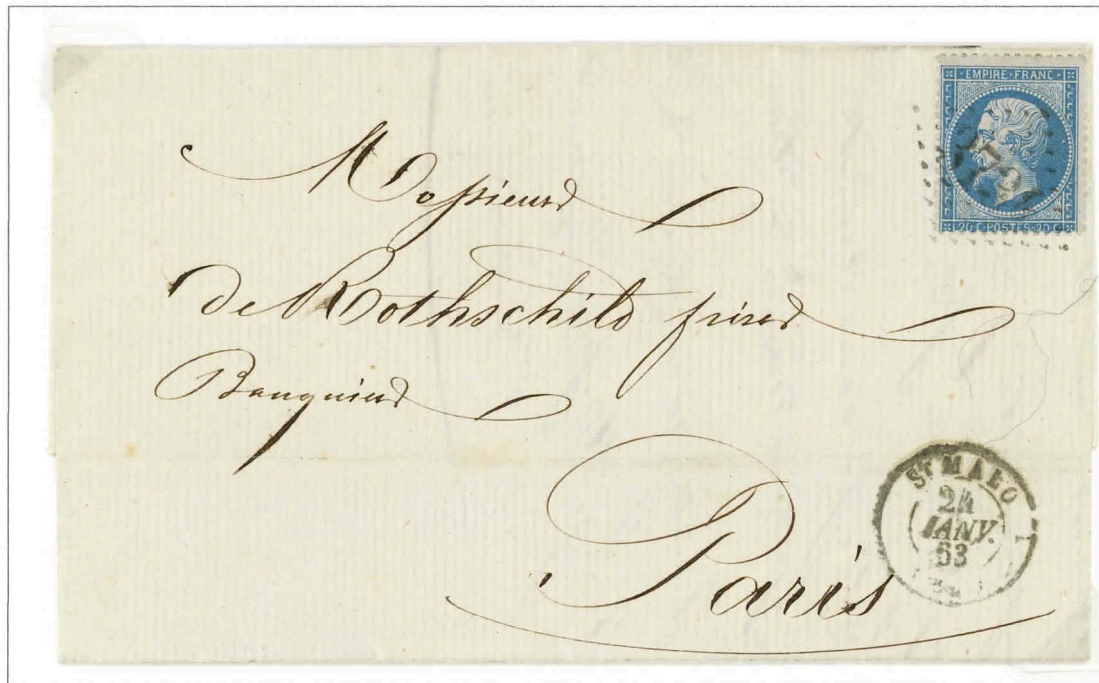 EMPIRE FRANC
20 C POSTES 20 C
Messieurs
de Rothschild frères
Banquiers
Paris
ST MALO
24
JANV.
63